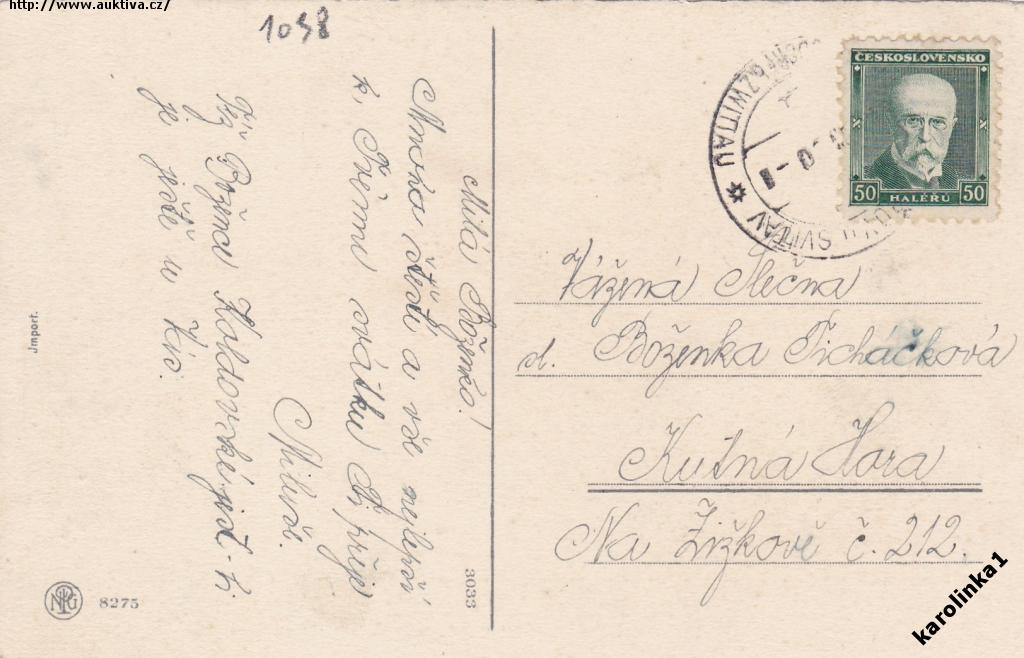 http://www.auktiva.cz/
1038
Milá Boženko!
Mnoho štěstí a vše nejlepší
k Tvému svátku Ti přeje
Miluše.
Též Božence
je ještě u Vás.
Jmport.
NPG
8275
3033
ČESKOSLOVENSKO
50 HALÉŘŮ 50
SVITAV
ZWITTAU
Vážená Slečna
sl. Boženka Ticháčková
Kutná Hora
Na Žižkově č. 212.
karolinka1